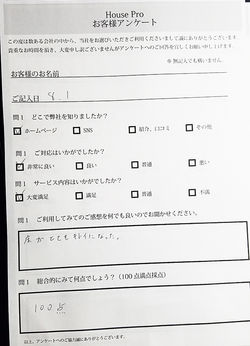 House Pro
お客様アンケート
この度は数ある会社の中から、当社をお選びいただきまして誠にありがとうございます。
貴重なお時間を頂き、大変申し訳ございませんがアンケートへのご回答を宜しくお願い申し上げます。
※ 無記入でも構いません
お客様のお名前
ご記入日 8.1
問1 どこで弊社を知りましたか?
ホームページ SNS 紹介、口コミ その他
問1 ご対応はいかがでしたか?
非常に良い 良い 普通 悪い
問1 サービス内容はいかがでしたか?
大変満足 満足 普通 不満
問1 ご利用してみてのご感想を何でも良いのでお聞かせください。
床がとてもキレイになった。
問1 総合的にみて何点でしょう?(100点満点採点)
100点
以上、アンケートへのご協力誠にありがとうございます。